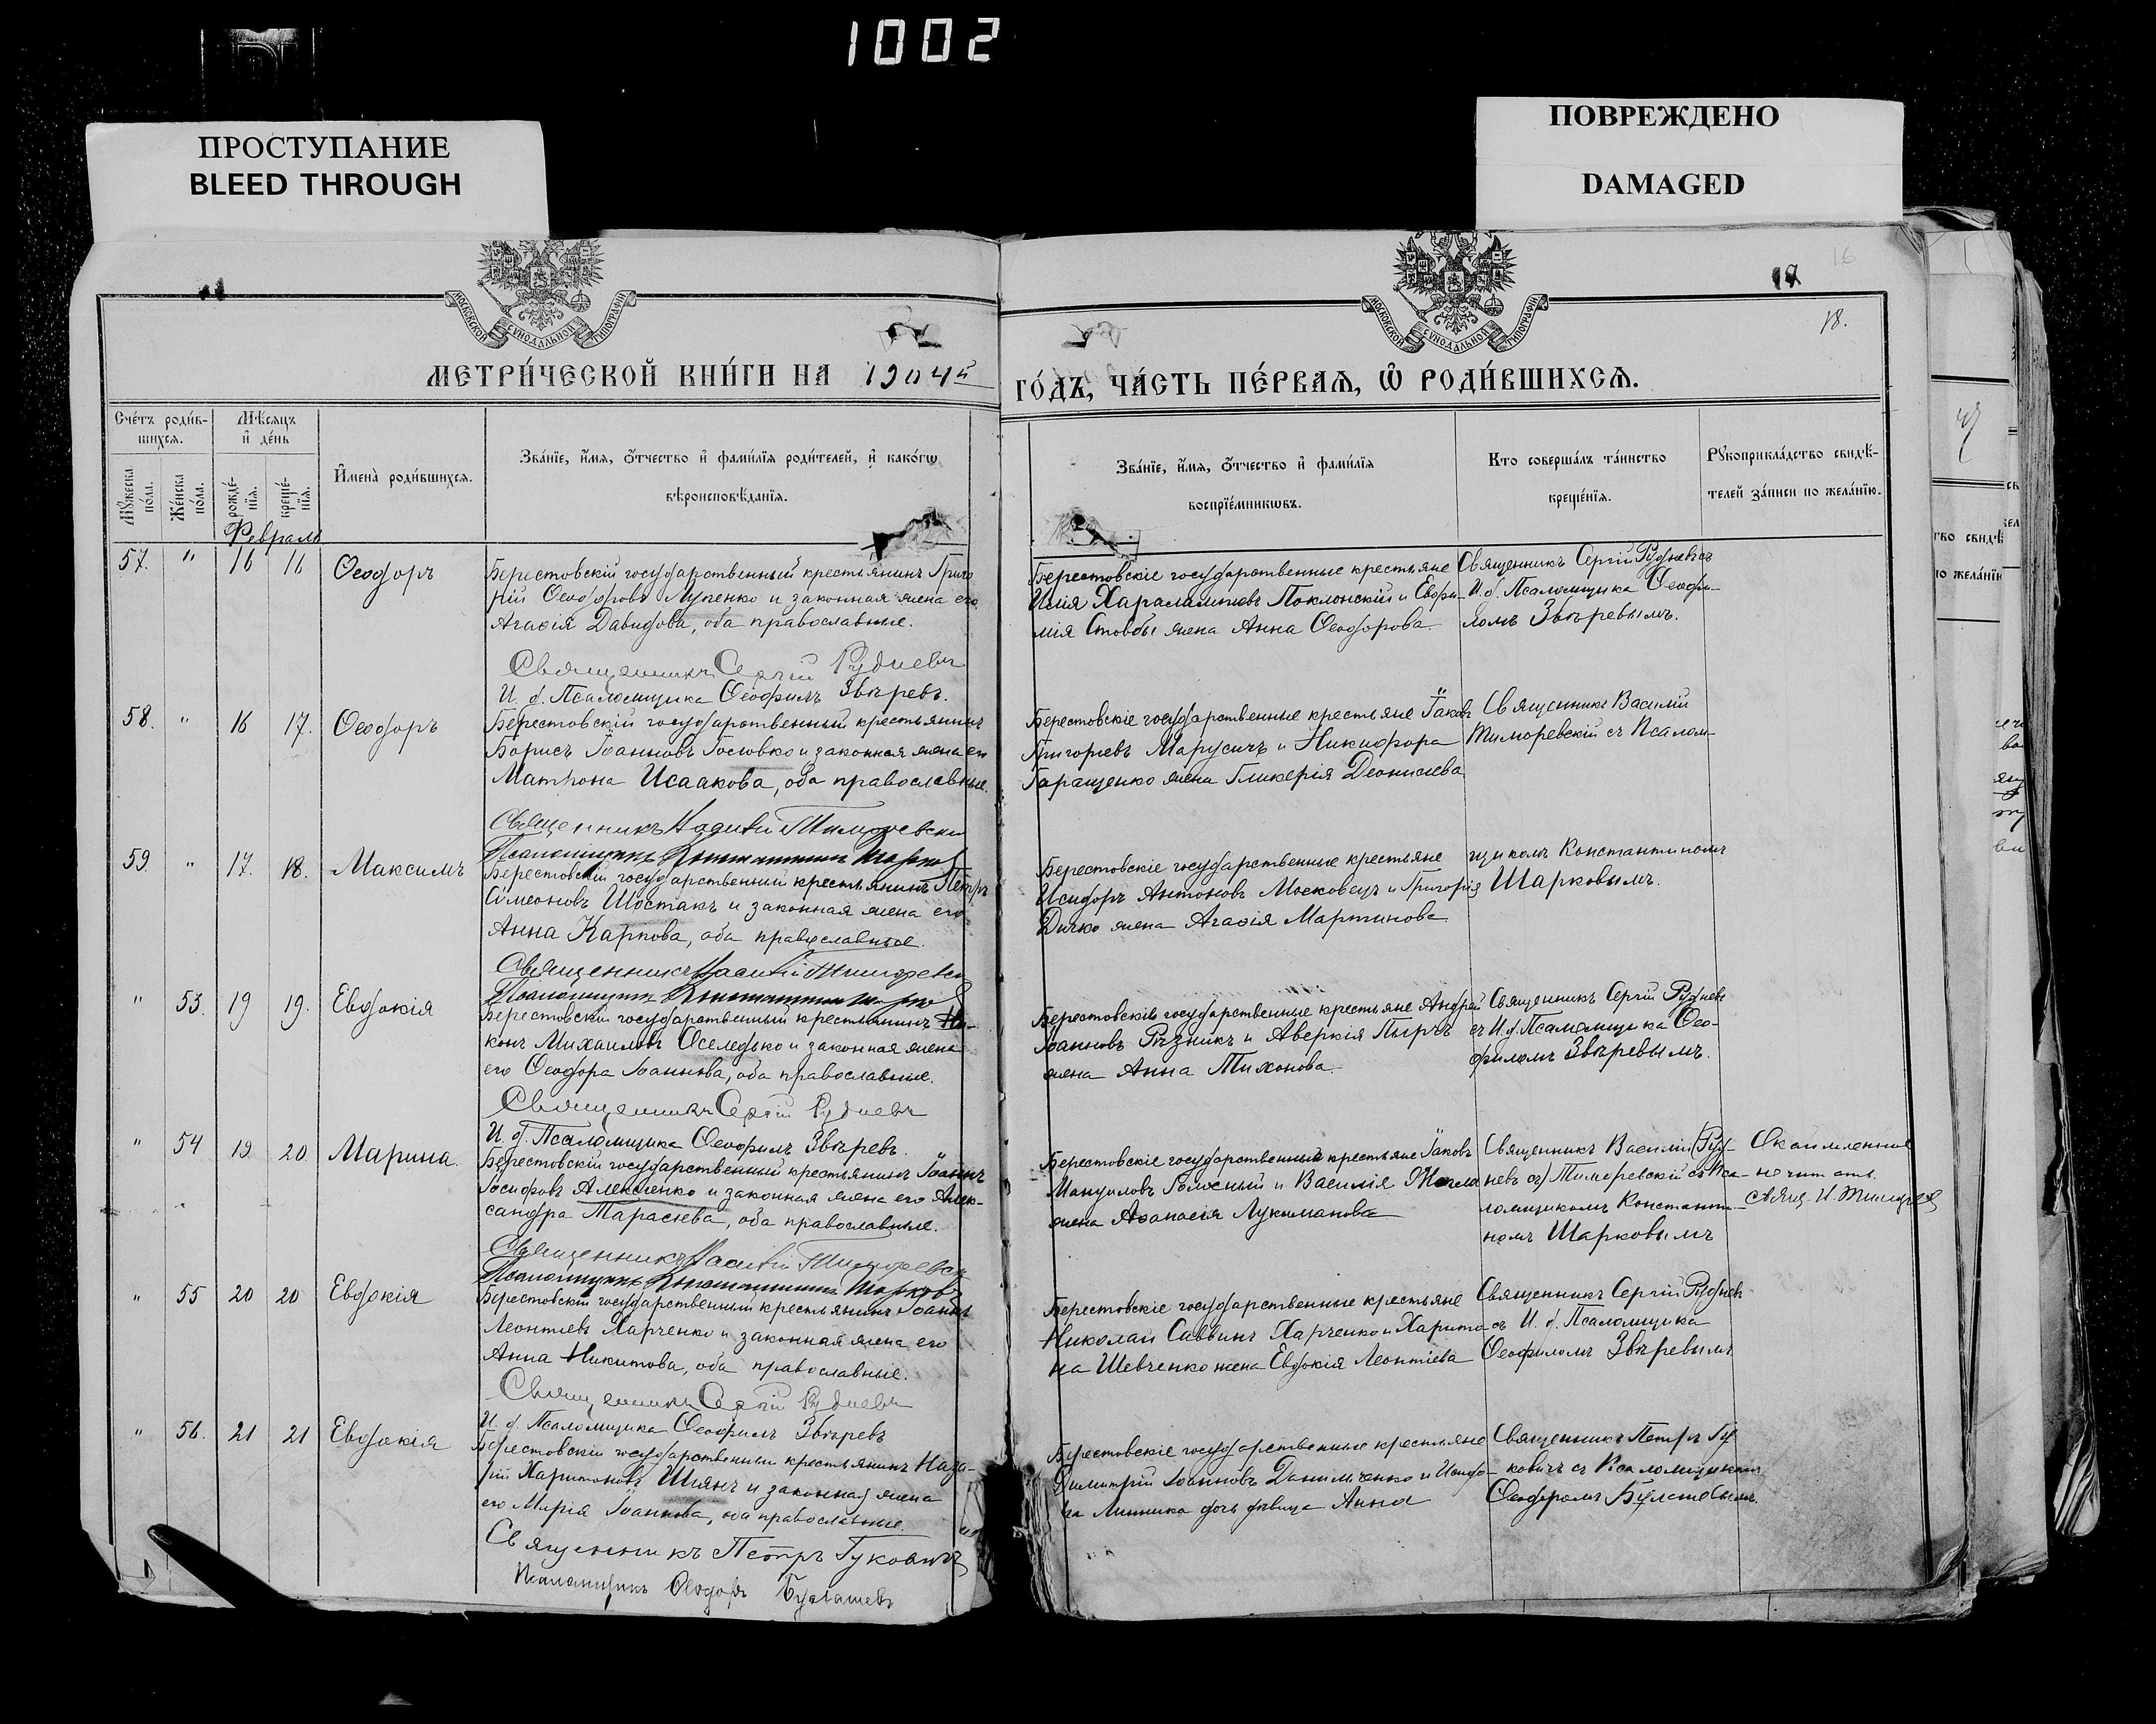 1002
ПРОСТУПАНИЕ
BLEED THROUGH
ПОВРЕЖДЕНО
DAMAGED
МОСКОВСКОЙ СУНОДАЛЬНОЙ ТИПОГРАФІИ
МОСКОВСКОЙ СУНОДАЛЬНОЙ ТИПОГРАФІИ
16
18.
МЕТРИ́ЧЕСКОЙ КНИ́ГИ НА 1904й
ГО́ДЪ, ЧА́СТЬ ПЕ́РВАѦ, Ѡ҆ РОДИ́ВШИХСѦ.
Сче́тъ роди́в-
шихсѧ.
Мѣ́сѧцъ
и҆ де́нь
Мꙋ́жеска
по́ла.
Же́нска
по́ла.
рожде́-
нїѧ.
креще́-
нїѧ.
И҆мена̀ роди́вшихсѧ.
Зва́нїе, и҆́мѧ, ѻ҆́тчество и҆ фами́лїѧ роди́телей, и҆ како́гѡ
вѣроисповѣ́данїѧ.
Зва́нїе, и҆́мѧ, ѻ҆́тчество и҆ фами́лїѧ
воспрїе́мникѡвъ.
Кто соверша́лъ та́инство
креще́нїѧ.
Рꙋкоприкла́дство свидѣ́-
телей за́писи по жела́нїю.
Февраль
57. " 16 16 Ѳеодоръ
Берестовскій государственный крестьянинъ Григо
рій Ѳеодоровъ Лупенко и законная жена его
Агаѳія Давидова, оба православные.
Священникъ Сергій Рудневъ
И. д. Псаломщика Ѳеофилъ Звѣревъ.
Берестовскіе государственные крестьяне
Илія Харалампіевъ Поклонскій и Евфи-
мія Стовбы жена Анна Ѳеодорова.
Священникъ Сергій Рудневъ съ
И. д. Псаломщика Ѳеофи-
ломъ Звѣревымъ.
58. " 16 17. Ѳеодоръ
Берестовскій государственный крестьянинъ
Борисъ Іоанновъ Головко и законная жена его
Матрона Исаакова, оба православные.
Священникъ Василій Тиморевскій
Псаломщикъ Константинъ Шарковъ
Берестовскіе государственные крестьяне Іаковъ
Григоріевъ Марусичъ и Никифора
Гаращенко жена Гликерія Деонисіева
Священникъ Василій
Тиморевскій съ Псалом-
59. " 17. 18. Максимъ
Берестовскій государственный крестьянинъ Петръ
Симеоновъ Шостакъ и законная жена его
Анна Карпова, оба православные.
Священникъ Василій Тиморевскій
Псаломщикъ Константинъ Шарковъ
Берестовскіе государственные крестьяне
Исидоръ Антоновъ Московецъ и Григорія
Дичко жена Агаѳія Мартинова
щикомъ Константиномъ
Шарковымъ.
" 53. 19 19. Евдокія
Берестовскій государственный крестьянинъ Ни-
конъ Михаиловъ Оселедько и законная жена
его Ѳеодора Іоаннова, оба православные.
Священникъ Сергій Рудневъ
И. д. Псаломщика Ѳеофилъ Звѣревъ.
Берестовскіе государственные крестьяне Андрей
Іоанновъ Рѣзникъ и Аверкія Пырчъ
жена Анна Тихонова.
Священникъ Сергій Рудневъ
съ И. д. Псаломщика Ѳео-
филомъ Звѣревымъ.
" 54 19 20 Марина.
Берестовскій государственный крестьянинъ Іоаннъ
Іосифовъ Алексѣенко и законная жена его Алек-
сандра Тарасіева, оба православные.
Священникъ Василій Тиморевскій
Псаломщикъ Константинъ Шарковъ
Берестовскіе государственные крестьяне Іаковъ
Мануиловъ Голосный и Василія
жена Аѳанасія Лукіманова
Священникъ Василій (Руд-
невъ съ) Тиморевскій съ Пса-
ломщикомъ Константи-
номъ Шарковымъ
Окаймленное
не читать.
Свящ. В. Тиморев
" 55 20 20 Евдокія
Берестовскій государственный крестьянинъ Іоаннъ
Леонтіевъ Харченко и законная жена его
Анна Никитова, оба православные.
Священникъ Сергій Рудневъ
И. д. Псаломщика Ѳеофилъ Звѣревъ
Берестовскіе государственные крестьяне
Николай Саввинъ Харченко и Харито-
на Шевченко жена Евдокія Леонтіева
Священникъ Сергій Рудневъ
съ И. д. Псаломщика
Ѳеофиломъ Звѣревымъ
" 56. 21 21 Евдокія
Берестовскій государственный крестьянинъ Наза-
рій Харитоновъ Шіянъ и законная жена
его Марія Іоаннова, оба православные.
Священникъ Петръ Гуковичъ
Псаломщикъ Ѳеодоръ
Берестовскіе государственные крестьяне
Димитрій Іоанновъ Данильченко и Исидо-
ра Линника дочь дѣвица Анна
Священникъ Петръ Гу
ковичъ съ Псаломщикомъ
Ѳеодоромъ